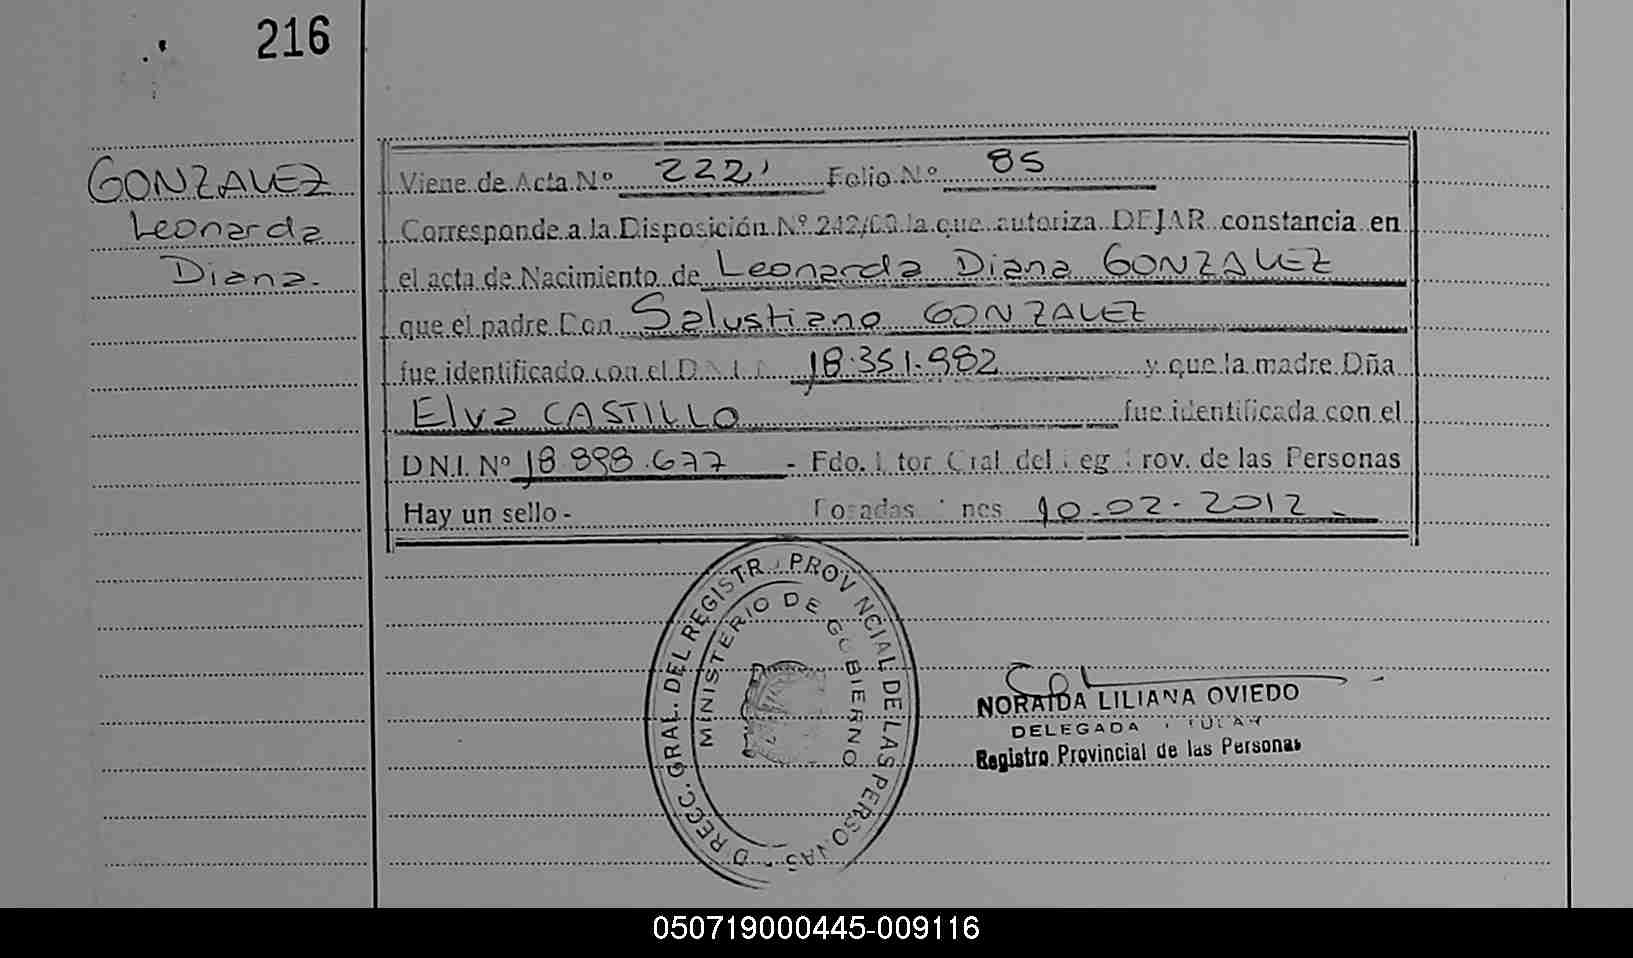 216
GONZALEZ
Leonarda
Diana.
Viene de Acta Nº 222 Folio Nº 85
Corresponde a la Disposición Nº 242/00 la que autoriza DEJAR constancia en
el acta de Nacimiento de Leonarda Diana GONZALEZ
que el padre Don Salustiano GONZALEZ
fue identificado con el D.N.I. 18.351.982 y que la madre Dña
Elva CASTILLO fue identificada con el
D N.I. Nº 18.898.677 - Fdo. Gral del Reg Prov. de las Personas
Hay un sello - Posadas 10-02-2012.
DIRECC. GRAL. DEL REGISTRO PROVINCIAL DE LAS PERSONAS
MINISTERIO DE GOBIERNO
NORAIDA LILIANA OVIEDO
DELEGADA TITULAR
Registro Provincial de las Personas
050719000445-009116